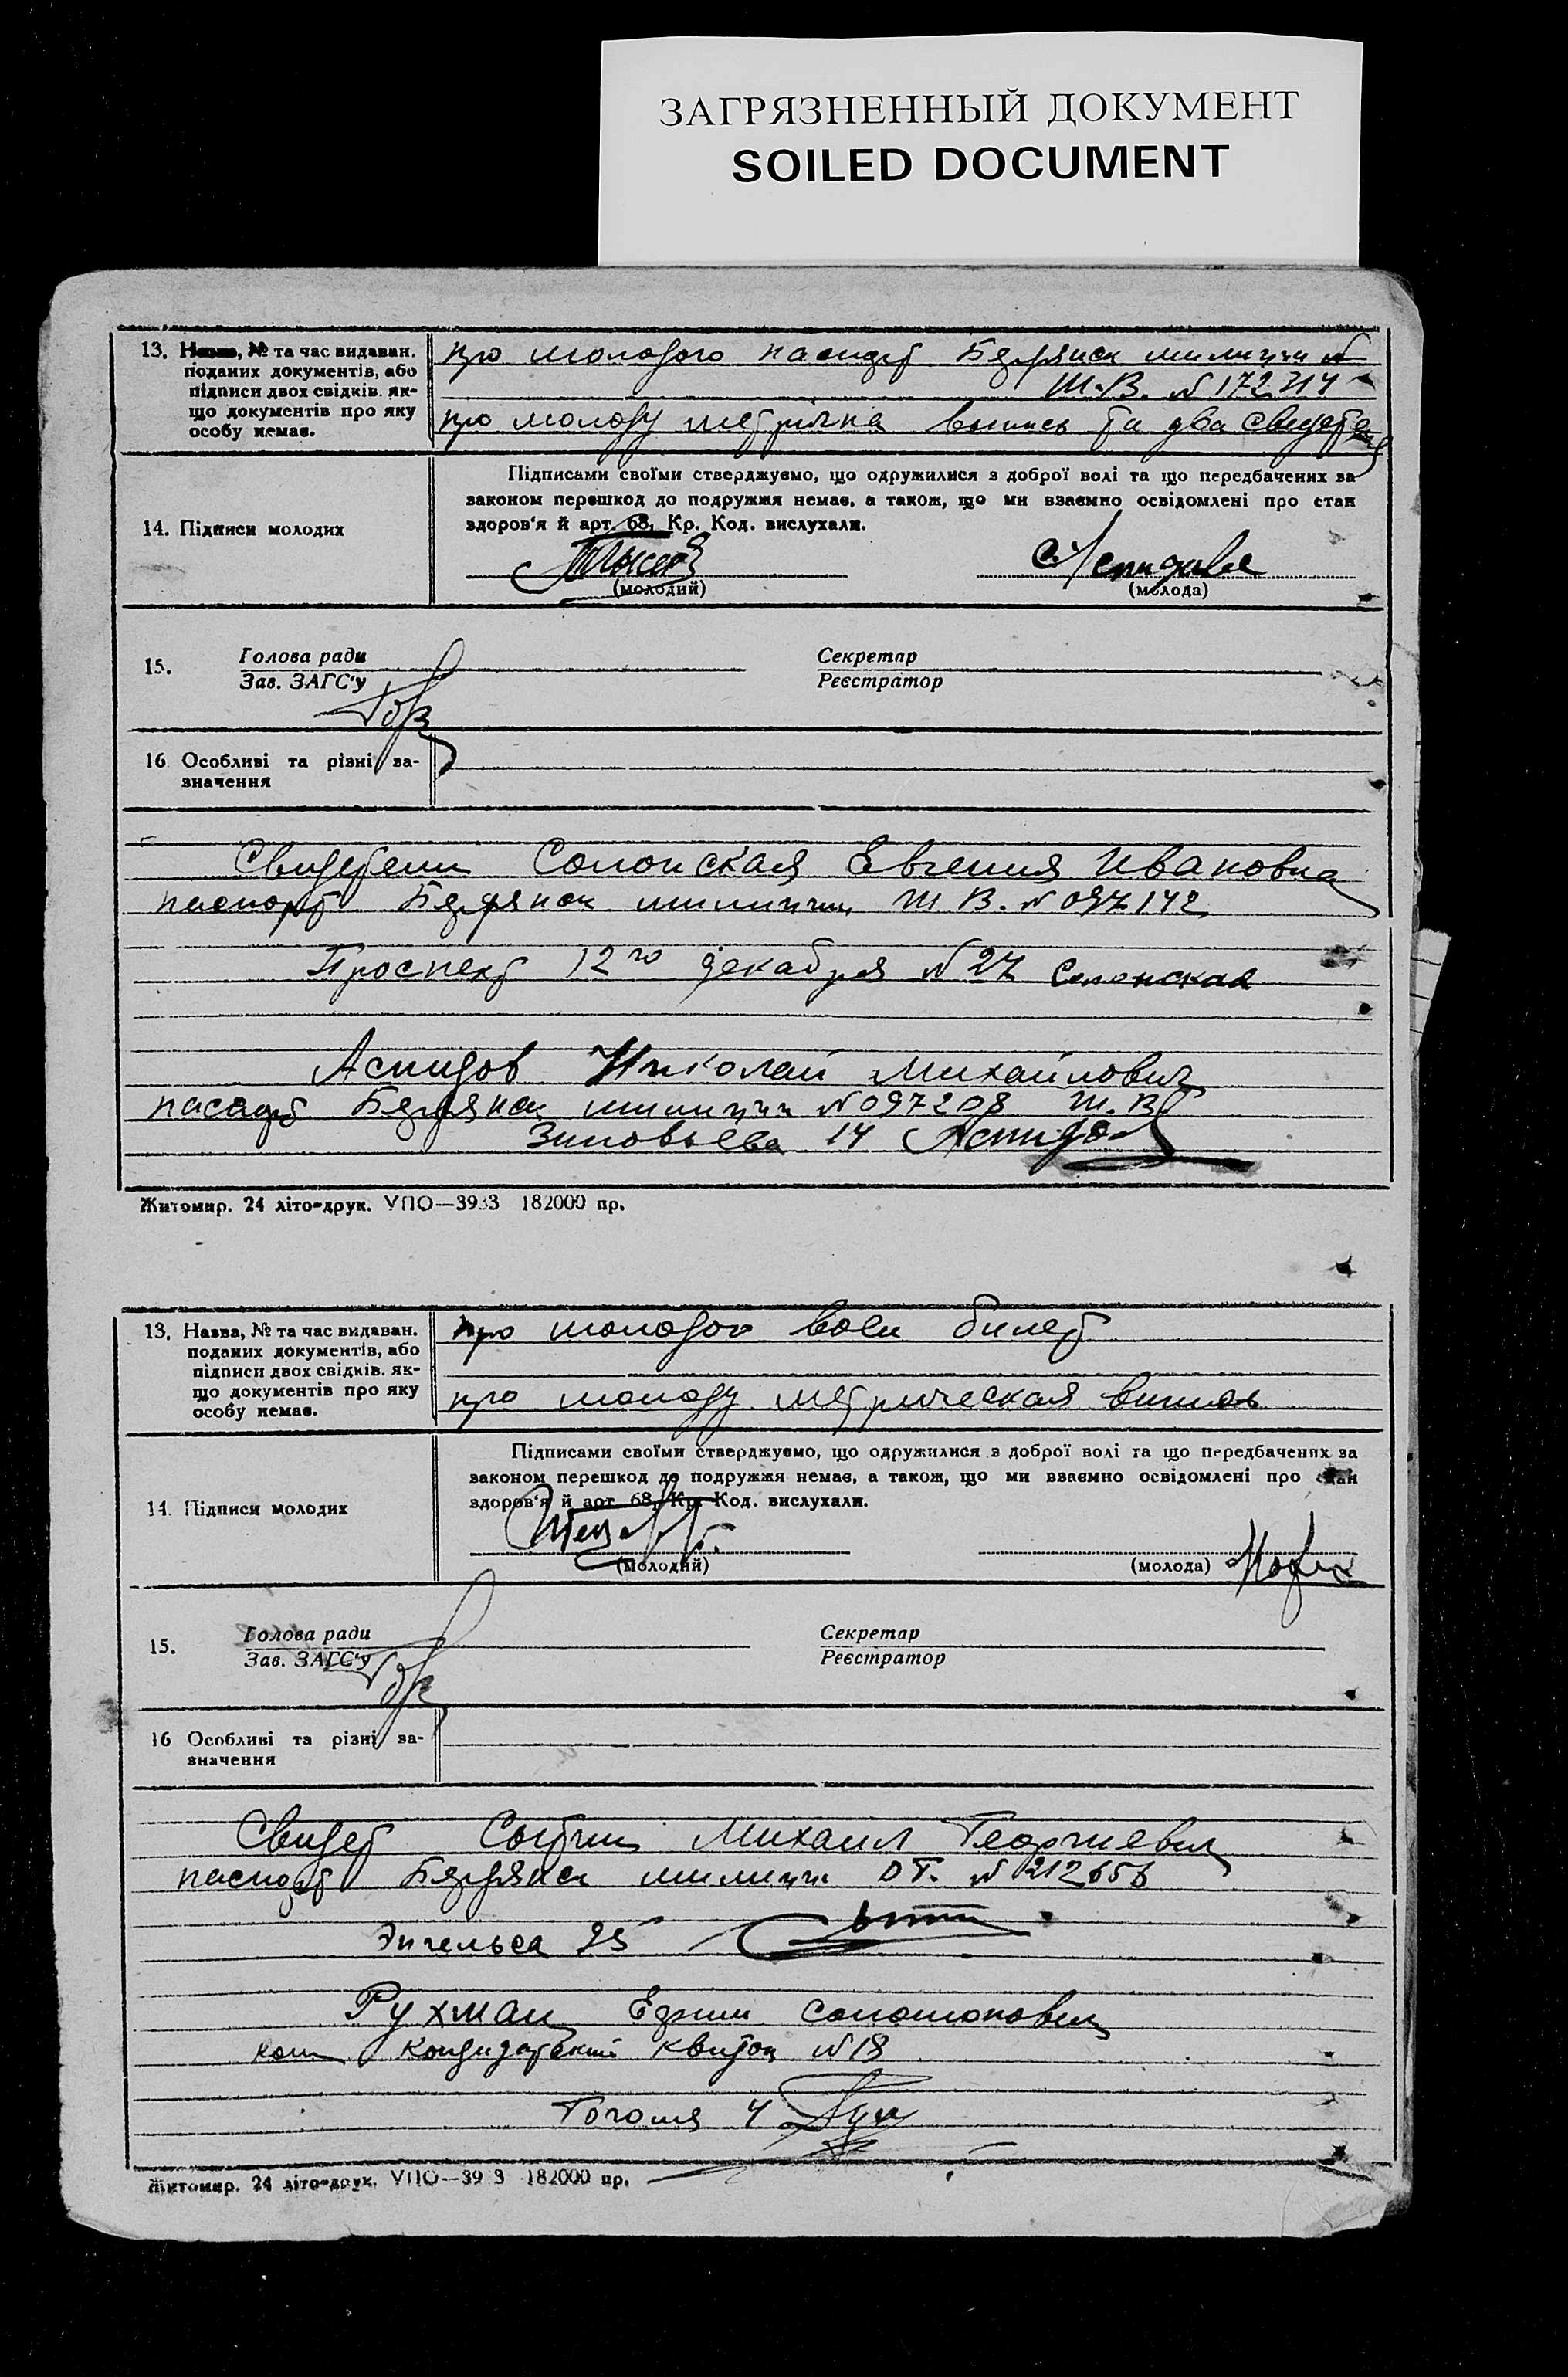 ЗАГРЯЗНЕННЫЙ ДОКУМЕНТ
SOILED DOCUMENT
13. Назва, № та час видаван. поданих документів, або підписи двох свідків, якщо документів про яку особу немає.
про молодого паспорт Бердянск милиции №
Ш.В. № 172314
про молоду метрична выпись та два свидетеля
Підписами своїми стверджуємо, що одружилися з доброї волі та що передбачених за
законом перешкод до подружжя немає, а також, що ми взаємно освідомлені про стан
здоров'я й арт. 68, Кр. Код. вислухали.
14. Підписи молодих
(молодий) (молода)
15. Голова ради Секретар
Зав. ЗАГС'у Реєстратор
16 Особливі та різні за-
значення
Свидетели Солонская Евгения Ивановна
паспорт Бердянск милиции Ш В. № 097142
Проспект 12го декабря № 27 Солонская
Аспидов Николай Михайлович
Бердянск милиции № 097208 Ш.В.
Зиновьева 14 Аспидов
Житомир. 24 літо-друк. УПО—3933 182000 пр.
13. Назва, № та час видаван.
поданих документів, або
підписи двох свідків, як-
що документів про яку
особу немає.
про молодого воен билет
про молоду метрическая выпись
Підписами своїми стверджуємо, що одружилися з доброї волі та що передбачених за
законом перешкод до подружжя немає, а також, що ми взаємно освідомлені про стан
здоров'я й арт. 68, Кр. Код. вислухали.
14. Підписи молодих
(молодий) (молода)
15. Голова ради Секретар
Зав. ЗАГС'у Реєстратор
16 Особливі та різні за-
значення
Свидет Михаил Георгиевич
паспорт Бердянск милиции № 212656
Энгельса 25
Рухман Ефим Соломонович
Кандидатський квиток № 18
Гоголя 4
Житомир. 24 літо-друк. УПО—39 3 182000 пр.